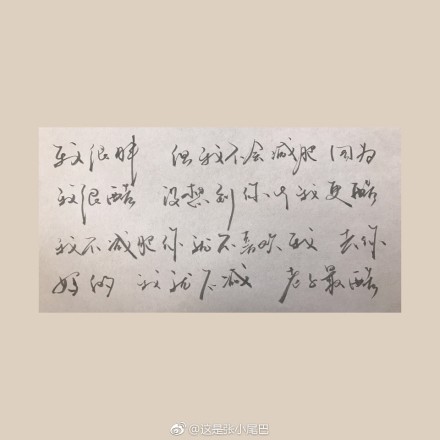 我很胖 但我不会减肥 因为
我很酷 没想到你比我更酷
我不减肥你就不喜欢我 去你
妈的 我就不减 老子最酷
@这是张小尾巴